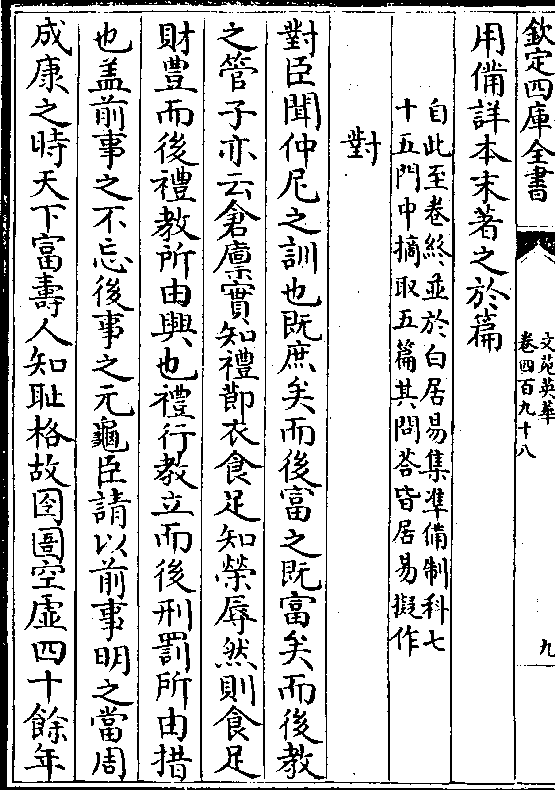 欽定四庫全書
文苑英華
卷四百九十八
九
用備詳本末著之於篇
自此至卷終並於白居易集凖備制科七
十五門中摘取五篇其問荅皆居易擬作
對
對臣聞仲尼之訓也既庶矣而後富之既富矣而後教
之管子亦云倉廪實知禮節衣食足知榮辱然則食足
財豊而後禮教所由興也禮行教立而後刑罰所由措
也盖前事之不忘後事之元龜臣請以前事明之當周
成康之時天下富壽人知耻格故囹圄空虛四十餘年